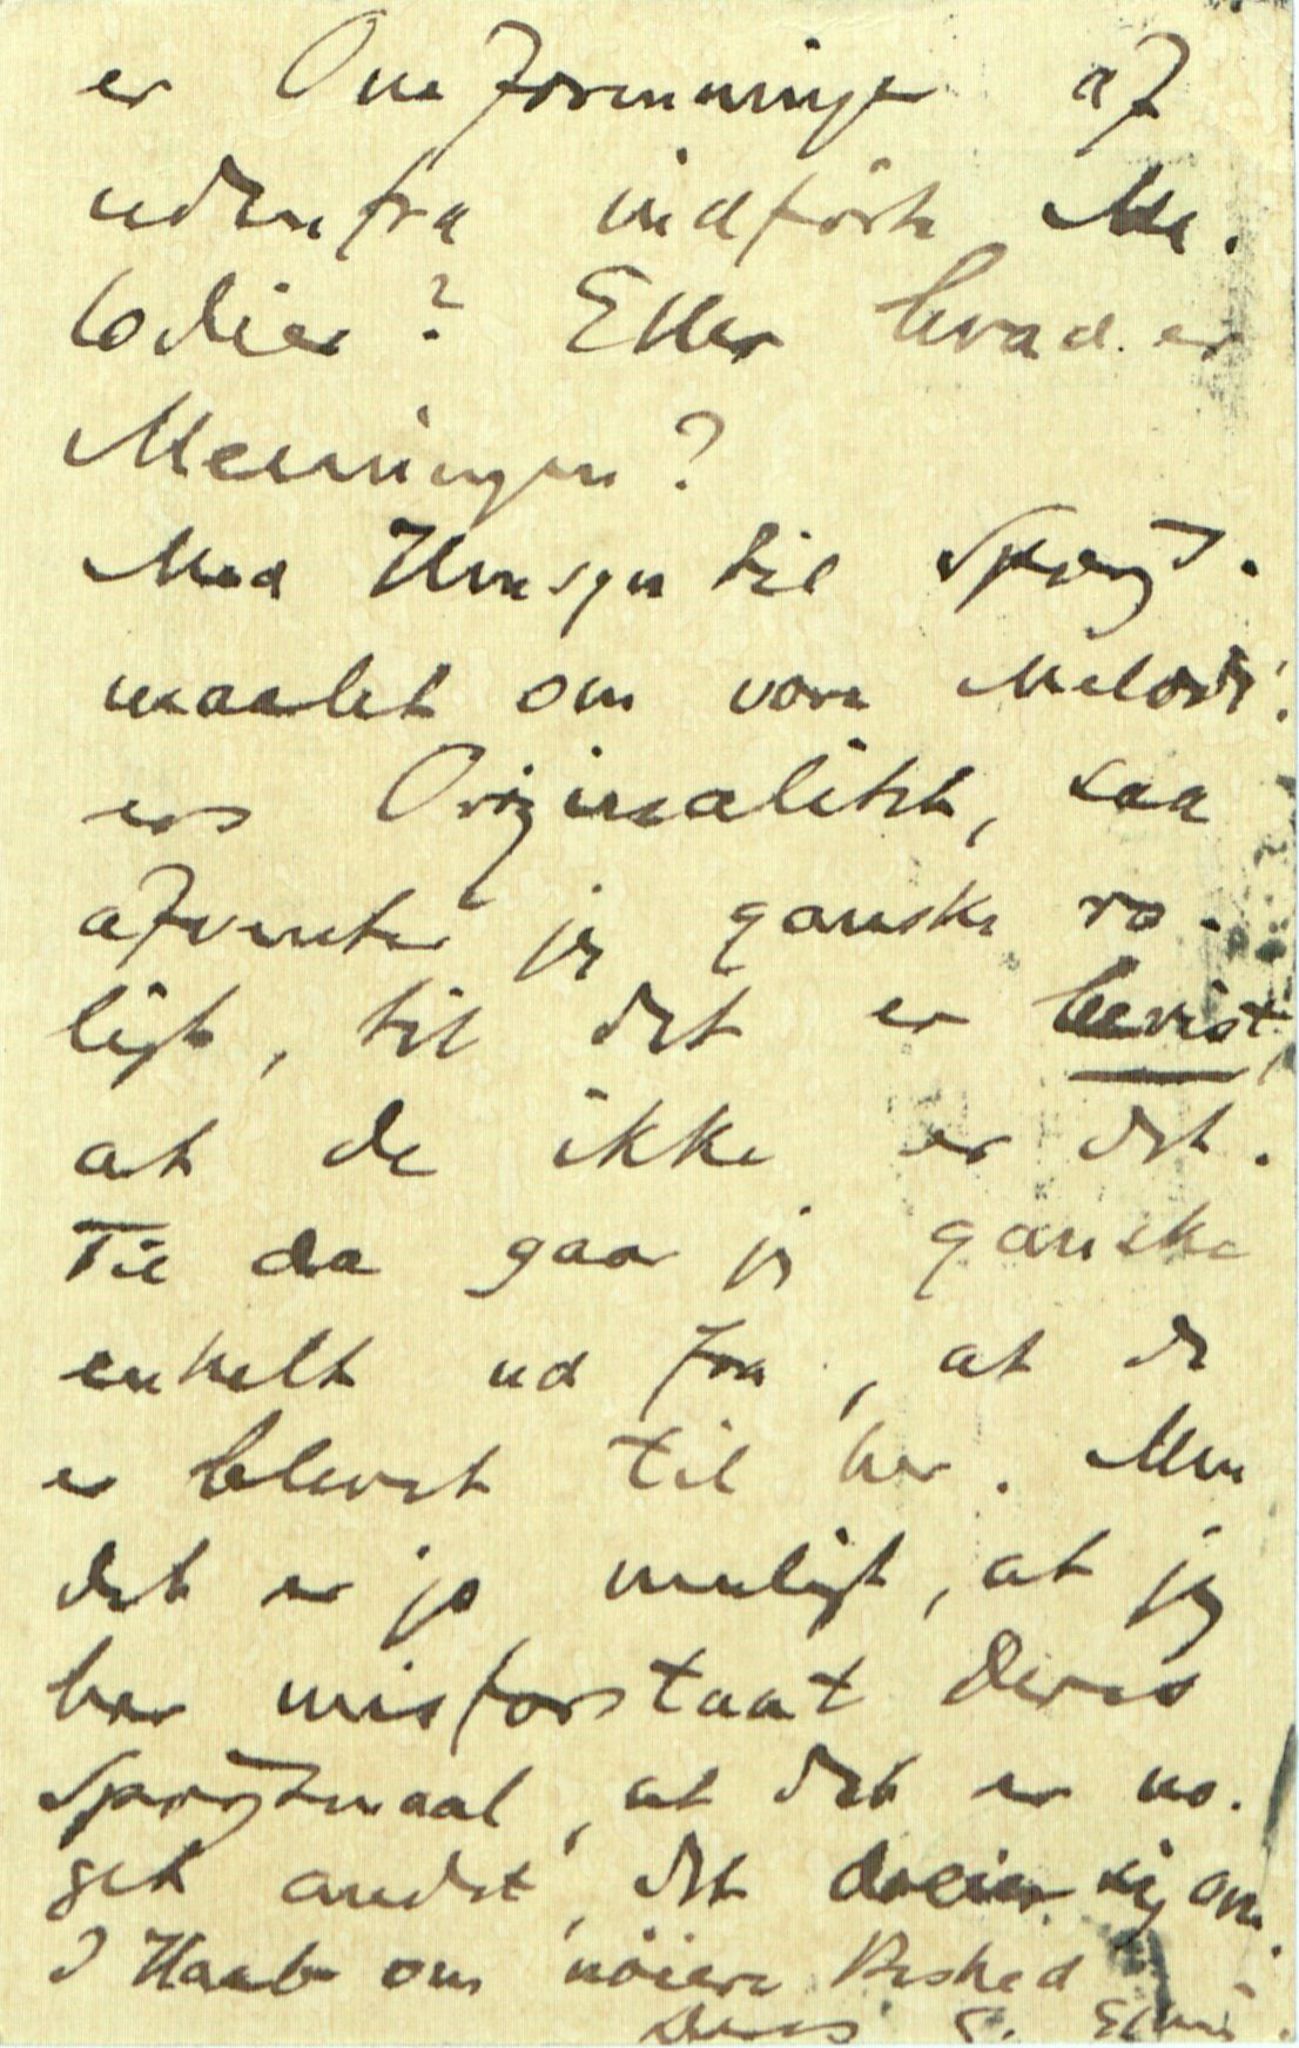 er Omformninger af
udenfra indførte Me-
lodier? Eller hvad er
Meningen?
Med Hensyn til Spørgs-
maalet om vore Melodi-
ers Originalitet, saa
afventer jeg ganske ro-
ligt, til det er bevist,
at de ikke er det.
Til da gaar jeg ganske
enkelt ud fra, at de
er blevet til her. Men
det er jo muligt, at jeg
har misforstaat Deres
Spørgsmaal, at det er no-
get andet, det dreier sig om.
I Haab om nöiere Besked
Deres